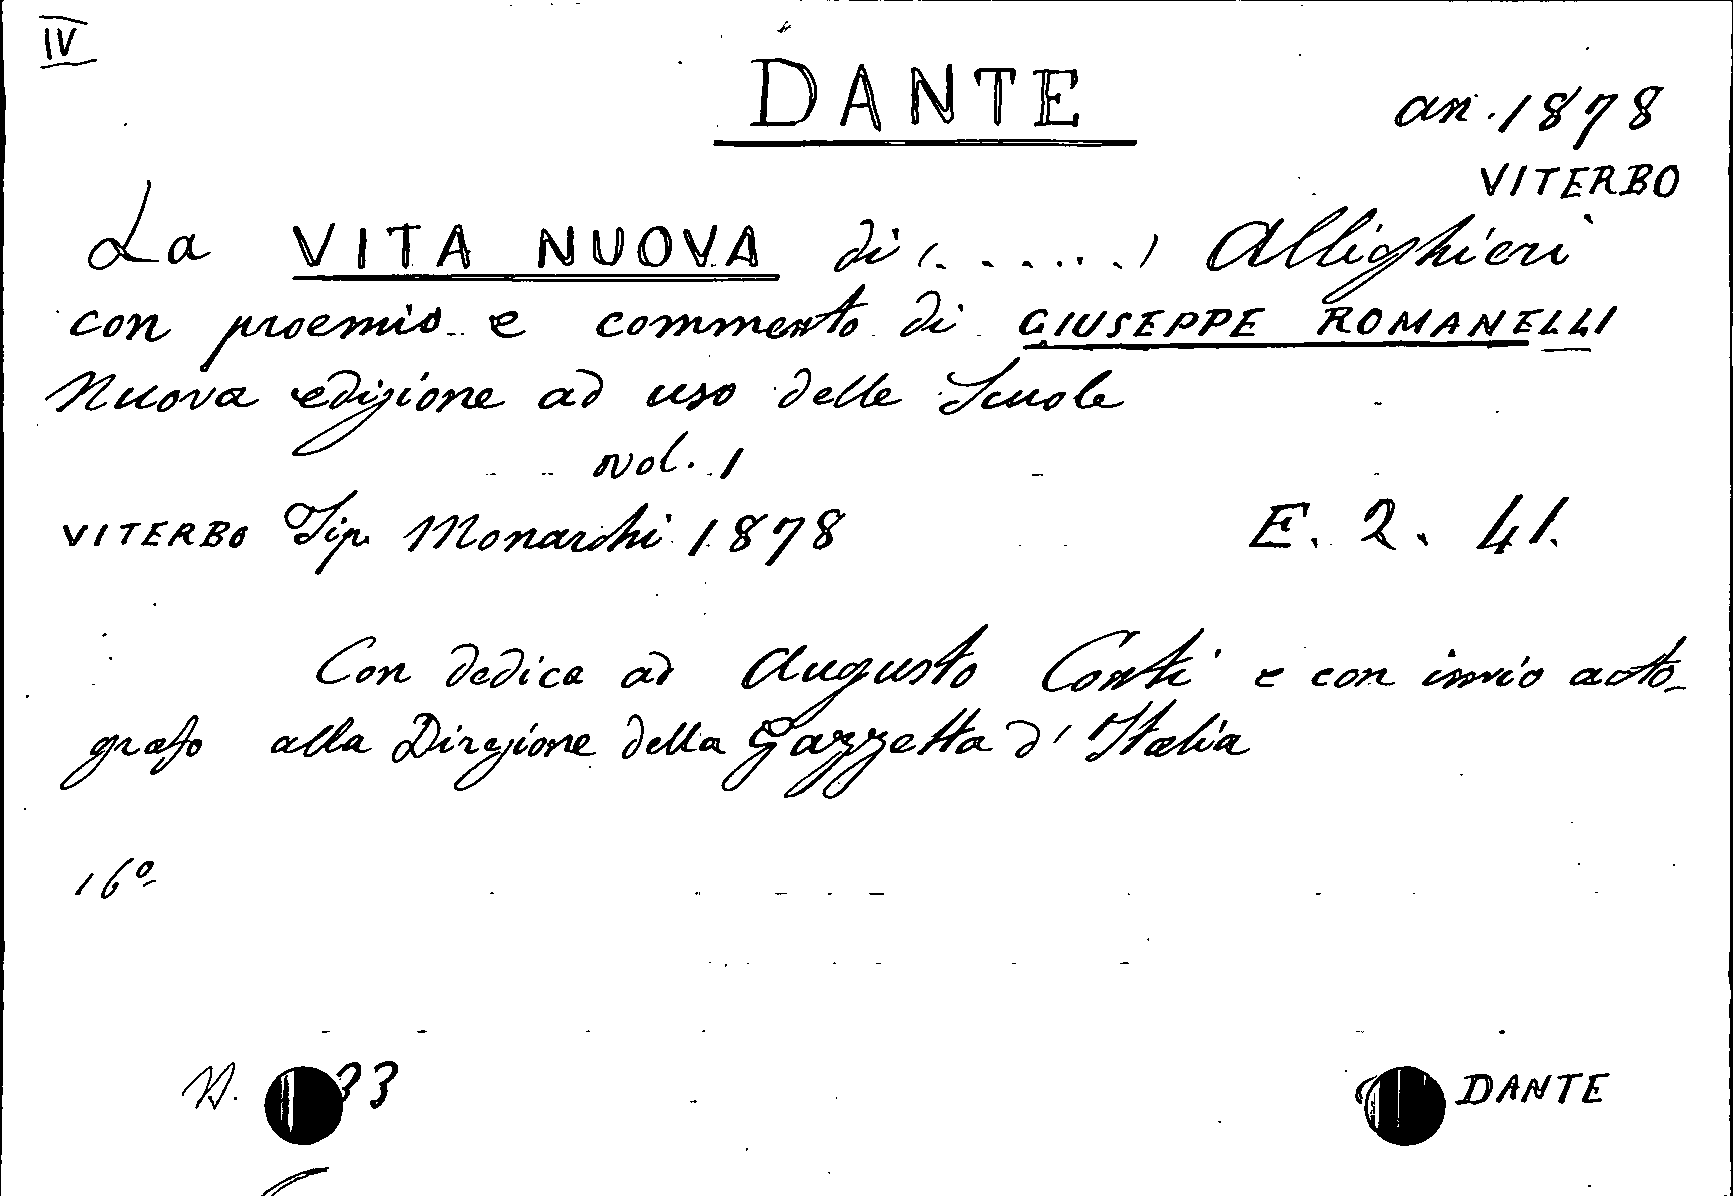 IV
DANTE
an. 1878
VITERBO
La VITA NUOVA di (......) Allighieri
con proemio e commento di GIUSEPPE ROMANELLI
Nuova edizione ad uso delle Scuole
vol. 1
VITERBO Tip. Monarchi 1878 E. 2. 41.
Con dedica ad Augusto Conti e con invio auto-
grafo alla Direzione della Gazzetta d'Italia
16º
N. 33
DANTE